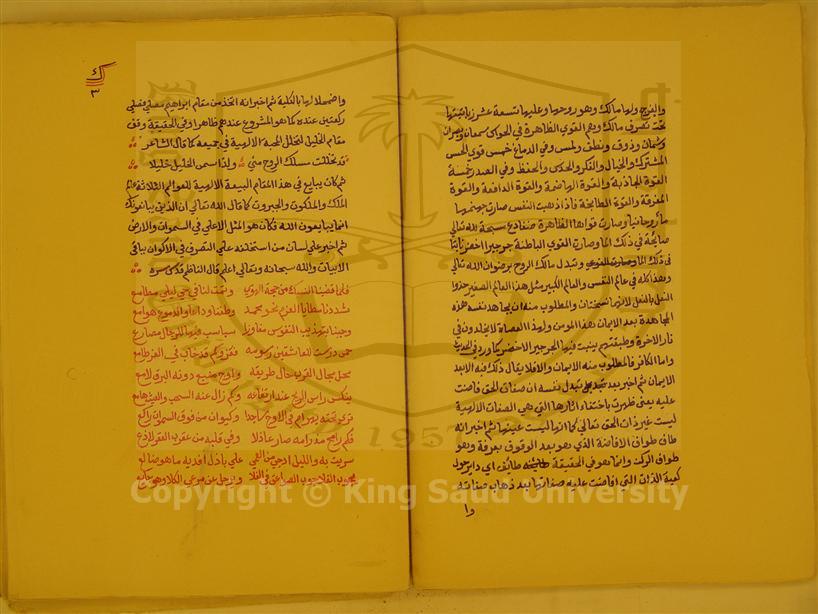 والفرج ولها مالك وهو روحها وعليها تسعة عشر زبانيتها
تحت تصرف مالك وهم القوي الظاهرة في الحواس سمعان وبصران
وشمان وذوق ونطق ولمس وفي الدماغ خمس قوي الحس
المشترك والخيال والفكر والحدس والحفظ وفي الصدر خمسة
القوة الجاذبة والقوة الهاضمة والقوة الدافعة والقوة
المفرقة والقوة الطابخة فاذا ذهبت النفس صارت جهنمها
ماء روحانيا وصارت قواها الظاهرة ضفادع سبحة لله تعالي
صائحة في ذلك الماء وصارت القوي الباطنة جرجيرا اخضر نابتا
في ذلك الماء وتبدل مالك الروح برضوان الله تعالي
وهذا كله في عالم النفس والعالم الكبير مثل هذا العالم الصغير حذوا
النعل بالنعل لانهما نسختان والمطلوب منه ان يجاهد نفسه هذه
المجاهدة بعد الايمان هذا المومن ولهذا العصاة لا يخلدون في
نار الاخرة وطبقتهم ينبت فيها الجرجير الاخضر كما ورد في الحديث
واما الكافر فالمطلوب منه الايمان والا فلا يقال ذلك فيه الا بعد
الايمان ثم اخبر بعد تبدل نفسه ان صفات الحق فاضت
عليه يعني ظهرت باختفاء اثارها التي هي الصفات الالهية
ليست غير ذات الحق تعالي كما انها ليست عينها ثم اخبر انه
طاف طواف الافاضة الذي هو بعد الوقوف بعرفة وهو
طواف الركن وانما هو في الحقيقة طائف اي داير حول
كعبة الذات التي افاضت عليه صفاتها بعد ذهاب صفاته
وا
ك
٣
واضمحلالها بالكلية ثم اخبر انه اتخذ من مقام ابراهيم مصلي فصلي
ركعتين عنده كما هو المشروع عندهم ظاهرا وفي الحقيقة وقف
مقام الخليل لتخلل المحبة الالهية في جميعه كما قال الشاعر
قد تخللت مسلك الروح مني ولذا سمي الخليل خليلا
ثم كان يبايع في هذا المقام البيعة الالهية للعوالم الثلاثة عالم
الملك والملكوت والجبروت كما قال الله تعالي ان الذين يبايعونك
انما يبايعون الله فكان هو المثل الاعلي في السموات والارض
ثم اخبر علي لسان من استخلفه علي التصرف في الاكوان بباقي
الابيات والله سبحانه وتعالي اعلم قال الناظم قدس سره
فلما قضينا النسك من حجة الهوي وتمت لنا في حي ليلي مطامع
شددنا مطايا العزم نحو محمد وطفنا وداعا والدموع هوامع
وجبنا بتهذيب النفوس مفاوزا سباسب فيها للرجال مصارع
حمي درست للعاشقين رسومه فعز وكم قد خاب في العز طامع
محل مجال القرب حال طريقه واوج منيع دونه البرق لامع
ينكس راس الريح عند ارتفاعه وكم زال عنه السحب والغيث هامع
تري تحته بهرام في الاوج ساجدا وكيوان من فوق السموات راكع
فكم رامح مذ رامه صار عاذلا وفي قلبه من عقرب العقر لاذع
سريت به والليل ادجي من العمي علي باذل افديه ما هو ضالع
يجوب الفلا جوب الصواعق في الفلا ويرحل عن مرعي الكلا وهو جائع